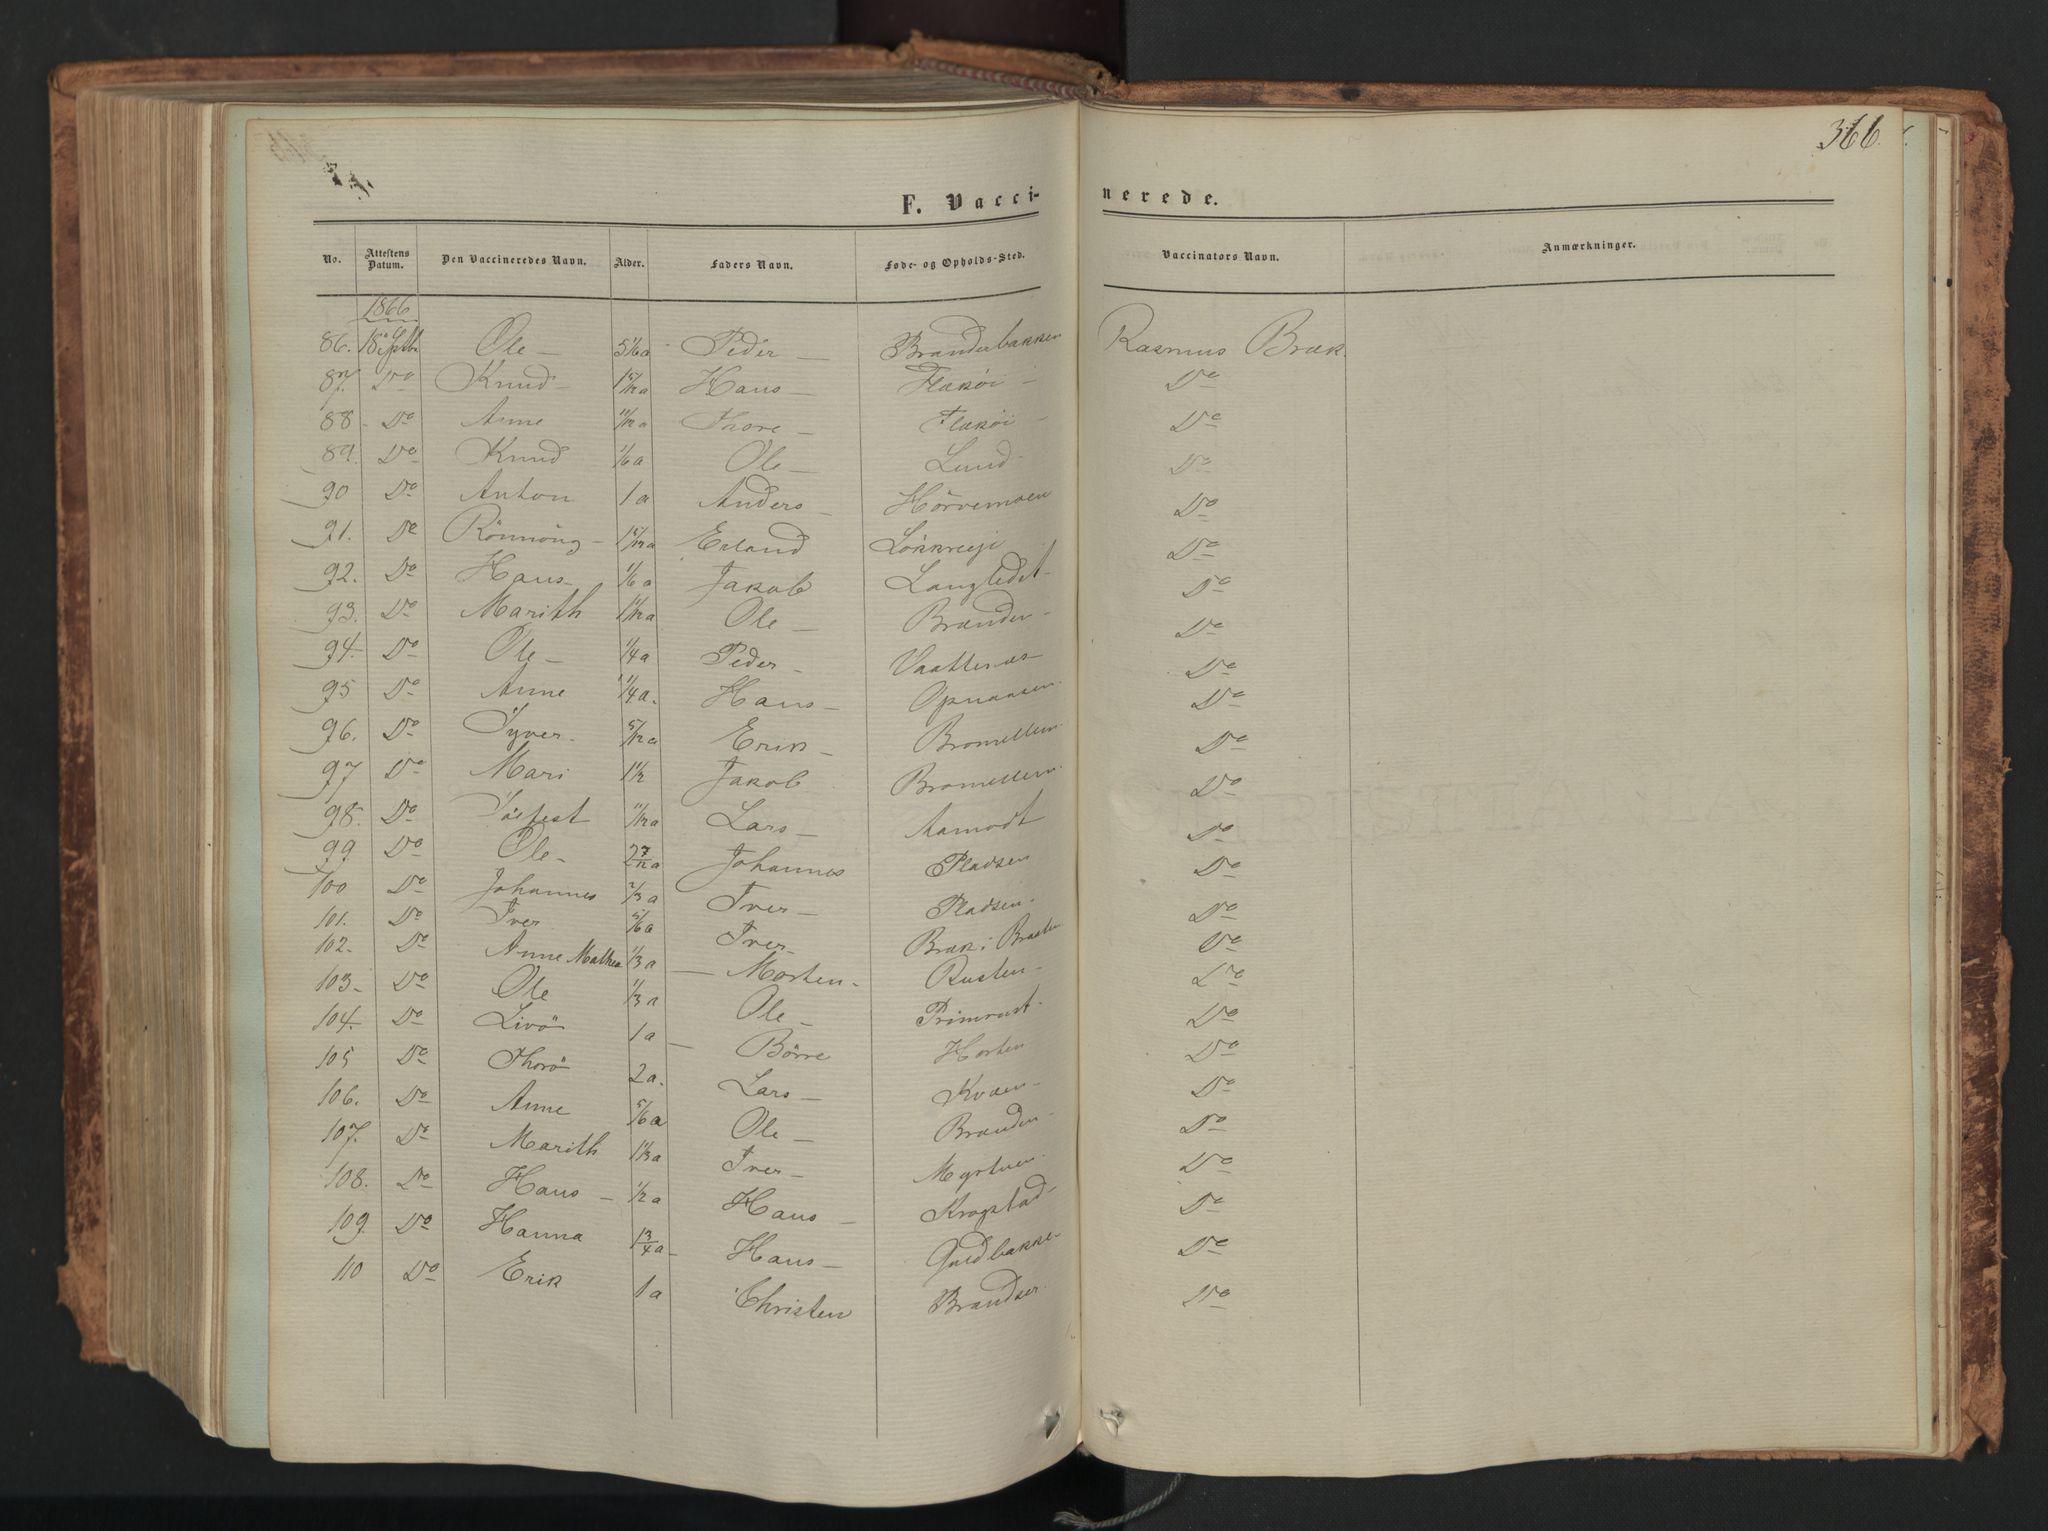 366.
F. Vaccinerede.
No. Attestens Datum. Den Vaccineredes Navn. Alder. Faders Navn. Føde- og Opholds-Sted. Vaccinators Navn. Anmærkninger.
1866
86. 18de Septbr Ole — Peder — Branderbakken Rasmus Bræk.
87. Do Knud — 1 5/12 a Hans — Flakøi — Do
88 Do Anne 11/12 a Thore — Flakøi — Do
89. Do Knud 1/6 a Ole — Lund Do
90 Do Anton 1 a Anders — Hörvemoen Do
91. Do Rönnöug — 1 5/12 a Erland Do
92. Do Hans — 1/6 a Jakob Langledet — Do
93. Do Marith Ole — Brænden — Do
94. Do Ole — 1/4 a Peder — Vaattenæs — Do
95 Do Anne 1/4 a. Hans — Do
96. Do Syver — 5/12 a Erik — Bromellem — Do
97 Do Mari 1 1/2 Jakob Bromellem — Do
98. Do 11/12 a Lars — Aamodt Do
99 Do Ole — 2 7/12 a Johannes Pladsen Do
100 Do Johannes 2/3 a Iver — Pladsen — Do
101. Do Iver 5/6 a Iver — Bræk i Braaten Do
102. Do Anne Mathea 1/3 a — Morten — Rusten — Do
103 — Do Ole 1/3 a Ole — Do
104. Do Livö 1 a — Börre Horten Do
105 Do Thorö 2 a. Lars — Kvæn — Do
106. Do Anne 5/6 a Ole — Brænden — Do
107. Do Marith 1 1/3 a Iver — Do
108. Do Hans — 1/2 a Hans — Krogstad — Do
109. Do Hanna 1 3/4 a — Hans — Do
110 Do Erik 1 a Christen Brandser Do